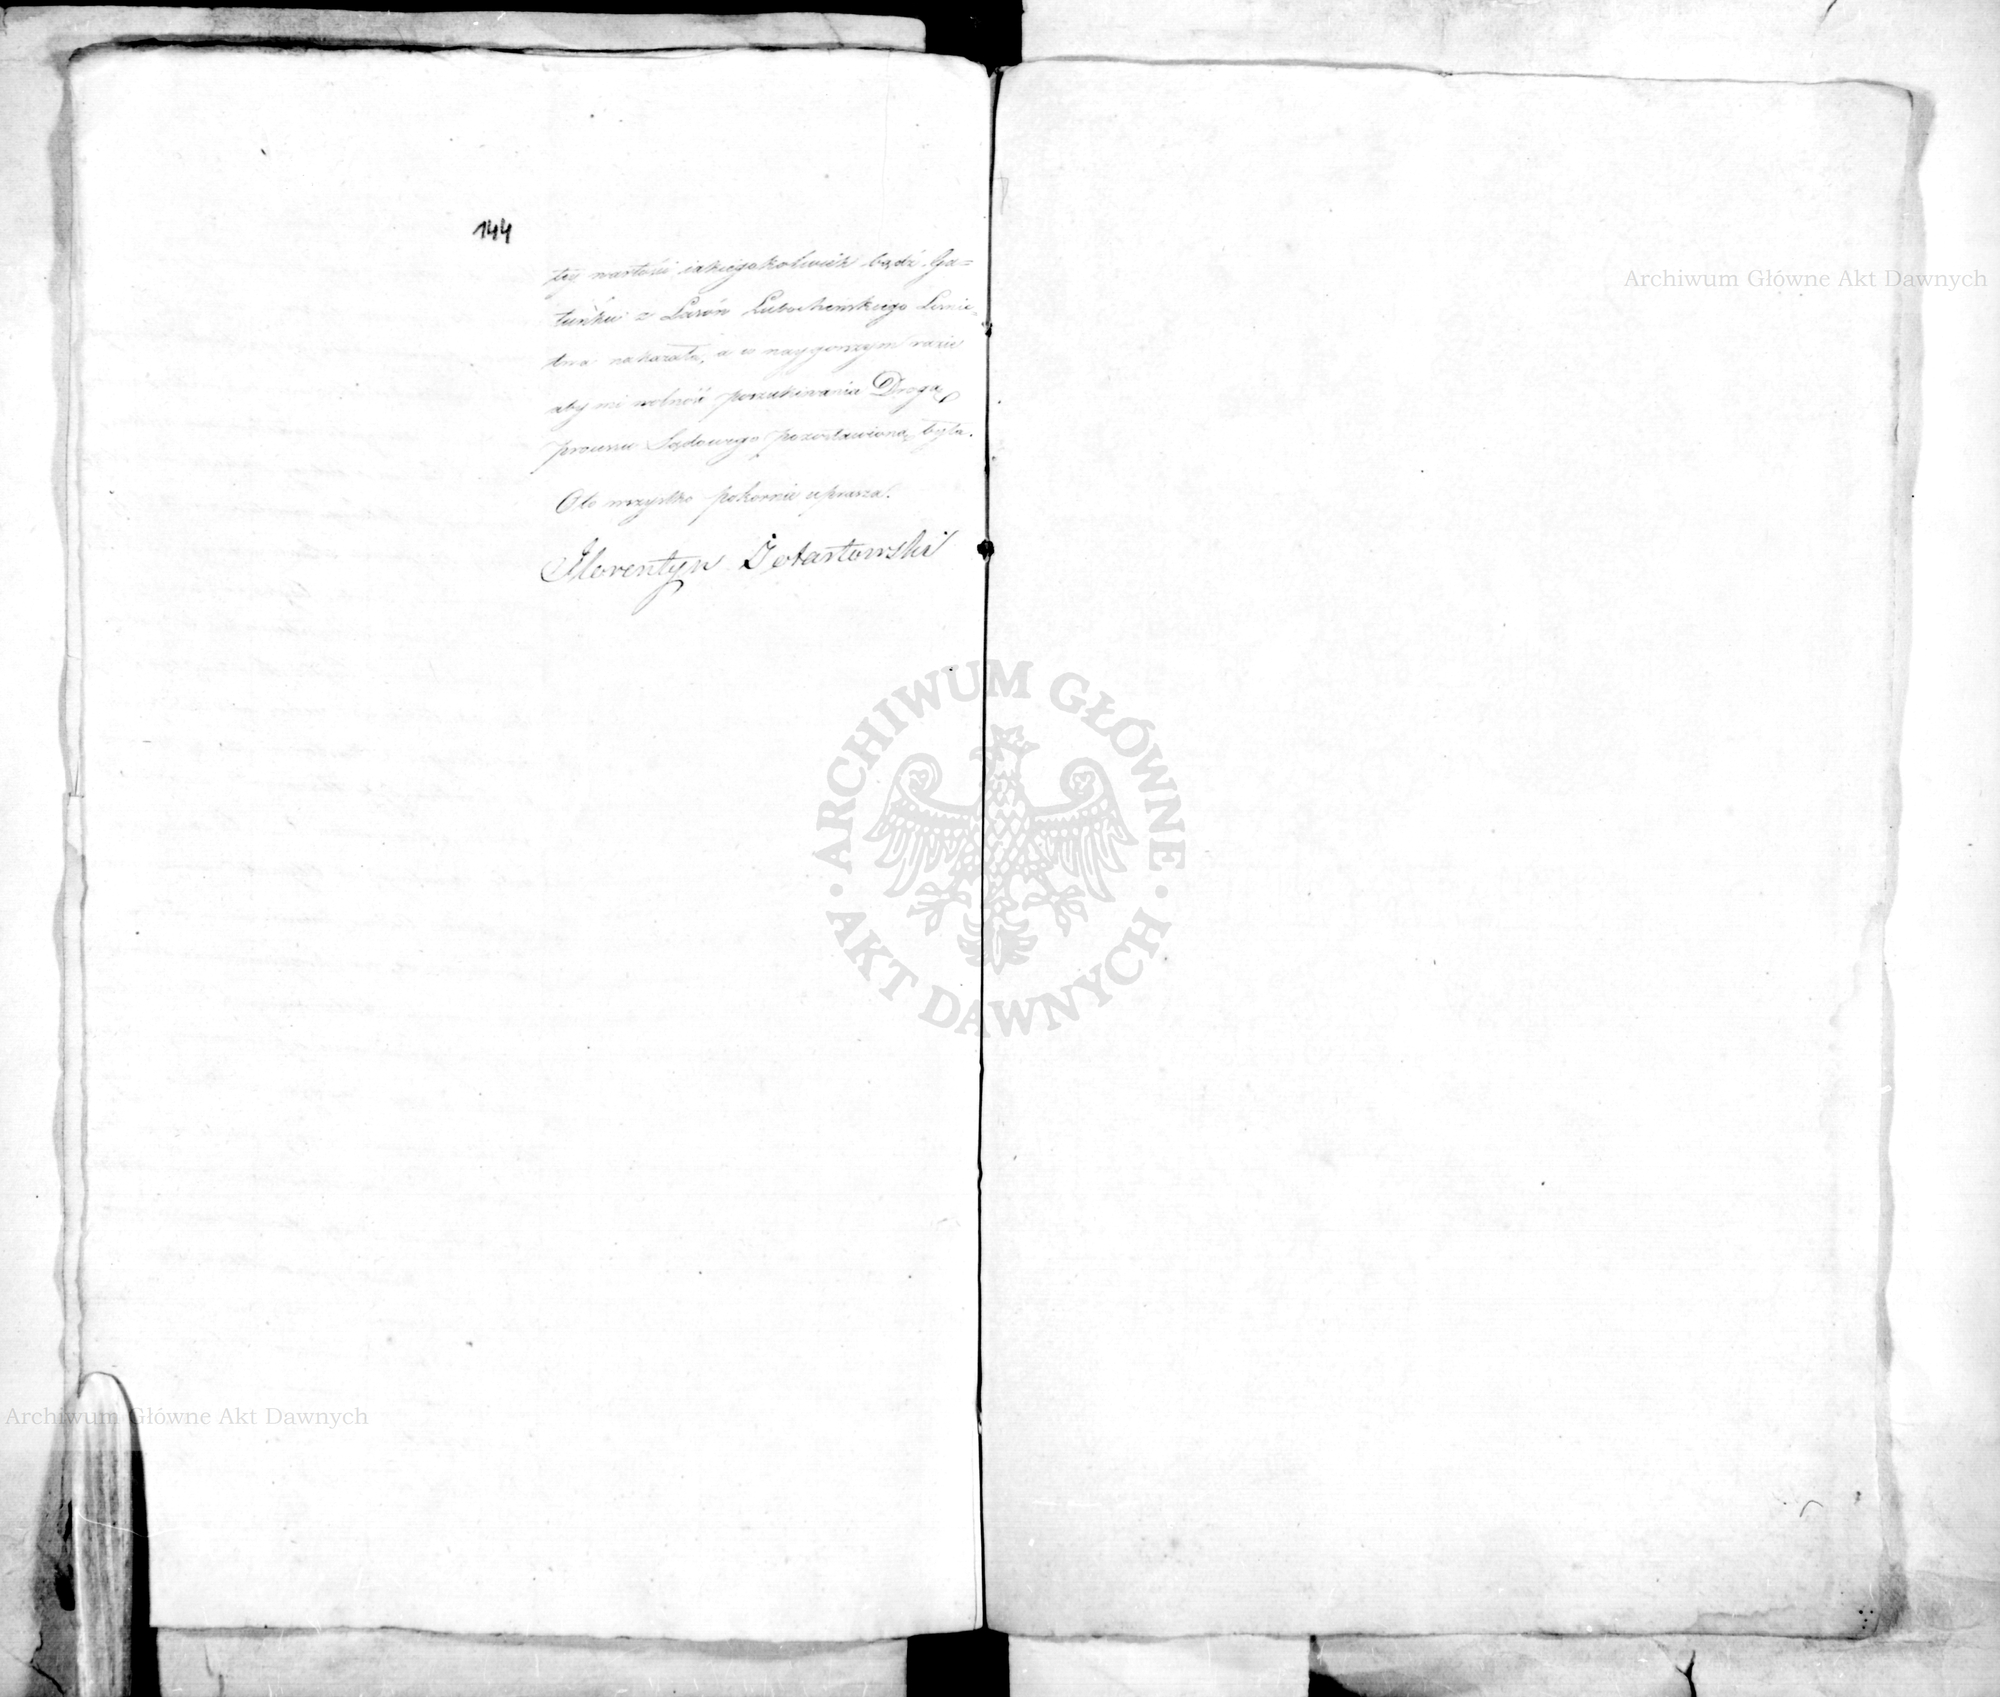 144
tey wartości iakiegokolwiek bądź Ga=
tunku z Lasów Lubochenskiego Leśnic=
twa nakazała, a w naygorszym razie
aby mi wolność poszukiwania Drogą
processu Sądowego pozostawioną była.
Oto wszystko pokornie uprasza.
Florentyn
Archiwum Główne Akt Dawnych
ARCHIWUM GŁÓWNE AKT DAWNYCH
Archiwum Główne Akt Dawnych